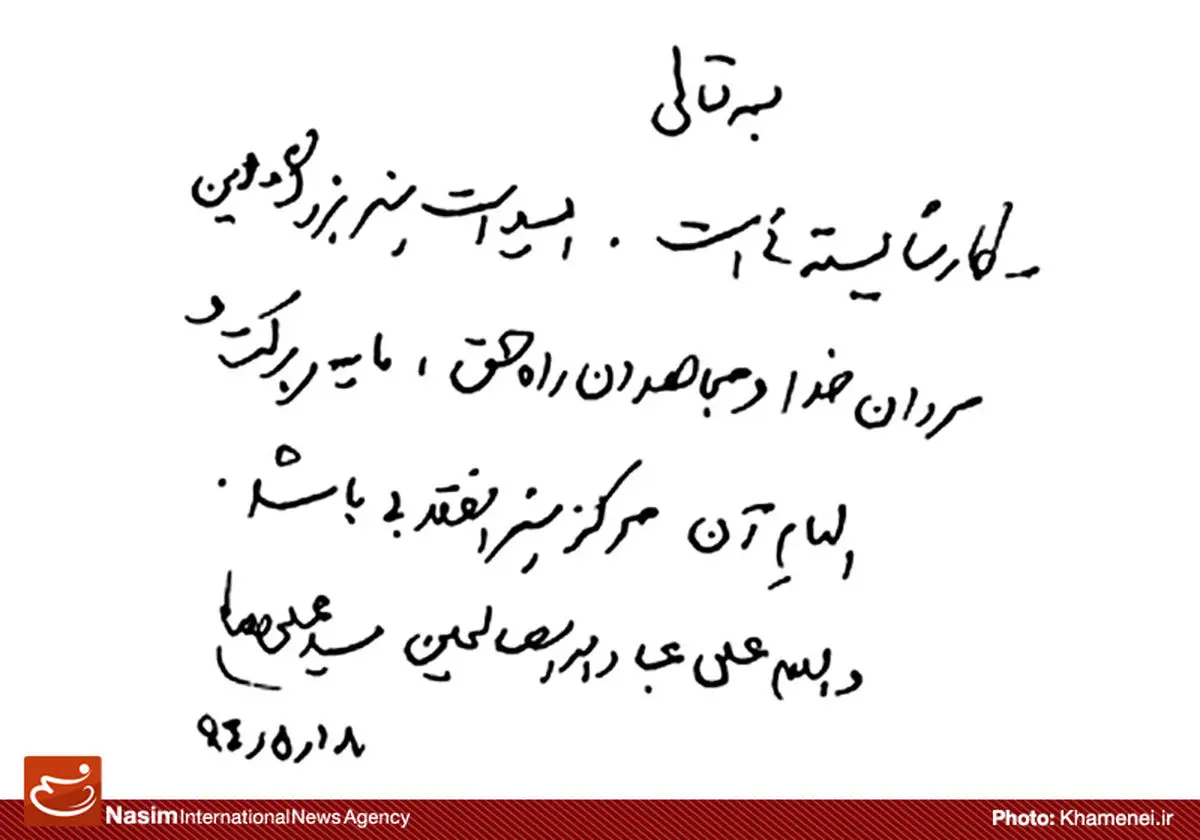 بسمه تعالی
- کار شایسته‌ئی است . امید است سنبل بزرگ و این
مردان خدا و مجاهدان راه حق ، مایه‌ی برکت و
الهام آن مرکز انقلابی باشد .
والسلام علی عباد الله الصالحین سیدعلی خامنه‌ای
۹۴ر۵ر۱۸
Nasim International News Agency
Photo: Khamenei.ir